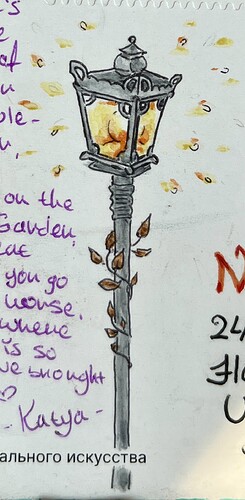 's
e
of
n
ole-
n.
on the
Garden,
cat
you go
house.
where
is so
we thought
- Katya -
N
24/
Flo
U
ального искусства